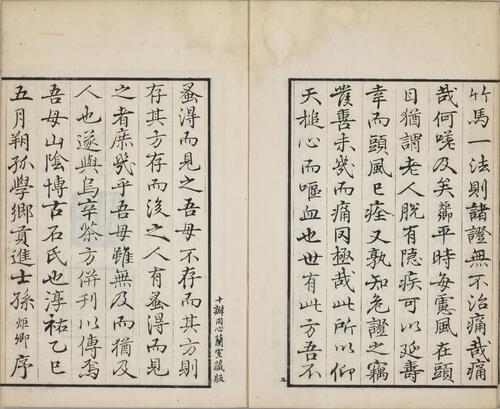 竹馬一法則諸證無不治哉痛
哉何嗟及矣炬卿平時每慮風在頭
目猶謂老人脫有隱疾可以延壽
幸而頭風已痊又孰知危證之竊
發喜未幾而痛罔極哉此所以仰
天搥心而嘔血也世有此方吾不
五
十瓣同心蘭室藏版
蚤得而見之吾母不存而其方則
存其方存而後之人有蚤得而見
之者庶幾乎吾母雖無及而猶及
人也遂與烏辛茶方併刊以傳焉
吾母山陰博古石氏也淳祐乙巳
五月朔孤學鄉貢進士孫炬卿序